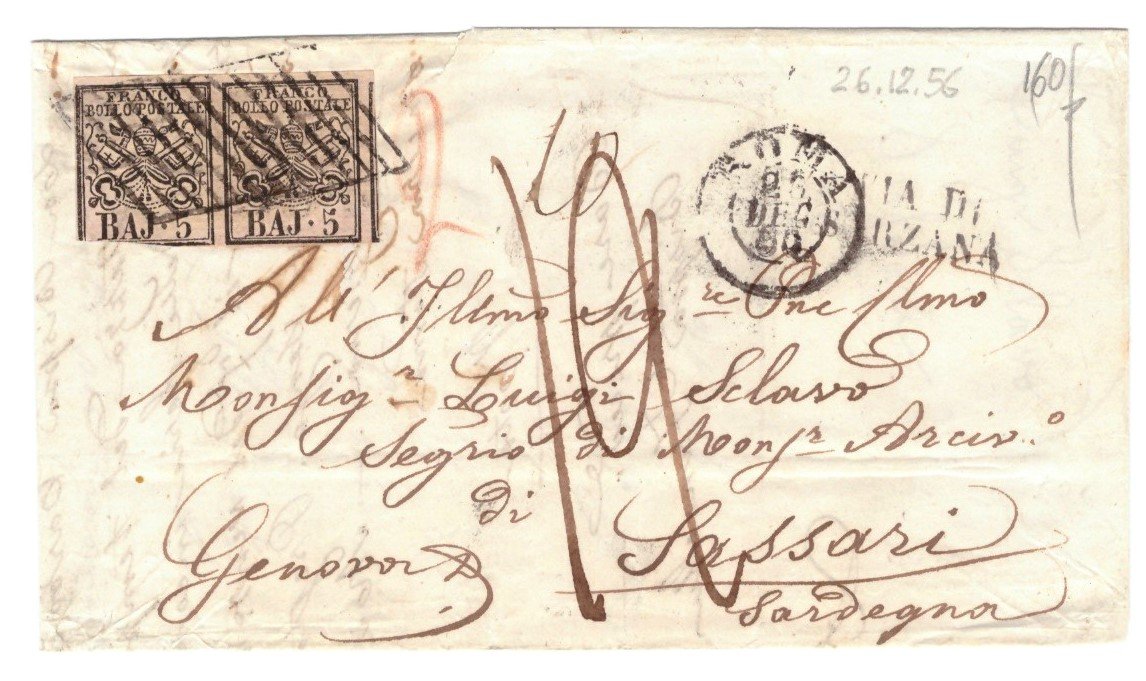 26.12.56
160
FRANCO
BOLLO POSTALE
BAJ·5
FRANCO
BOLLO POSTALE
BAJ·5
ROMA
26
DEC
56
VIA DI
SARZANA
10
All' Illmo Sig.re One Clmo
Monsig.r Luigi Sclavo
Segrio di Mons.r Arciv.o
di Sassari
Genova
Sardegna